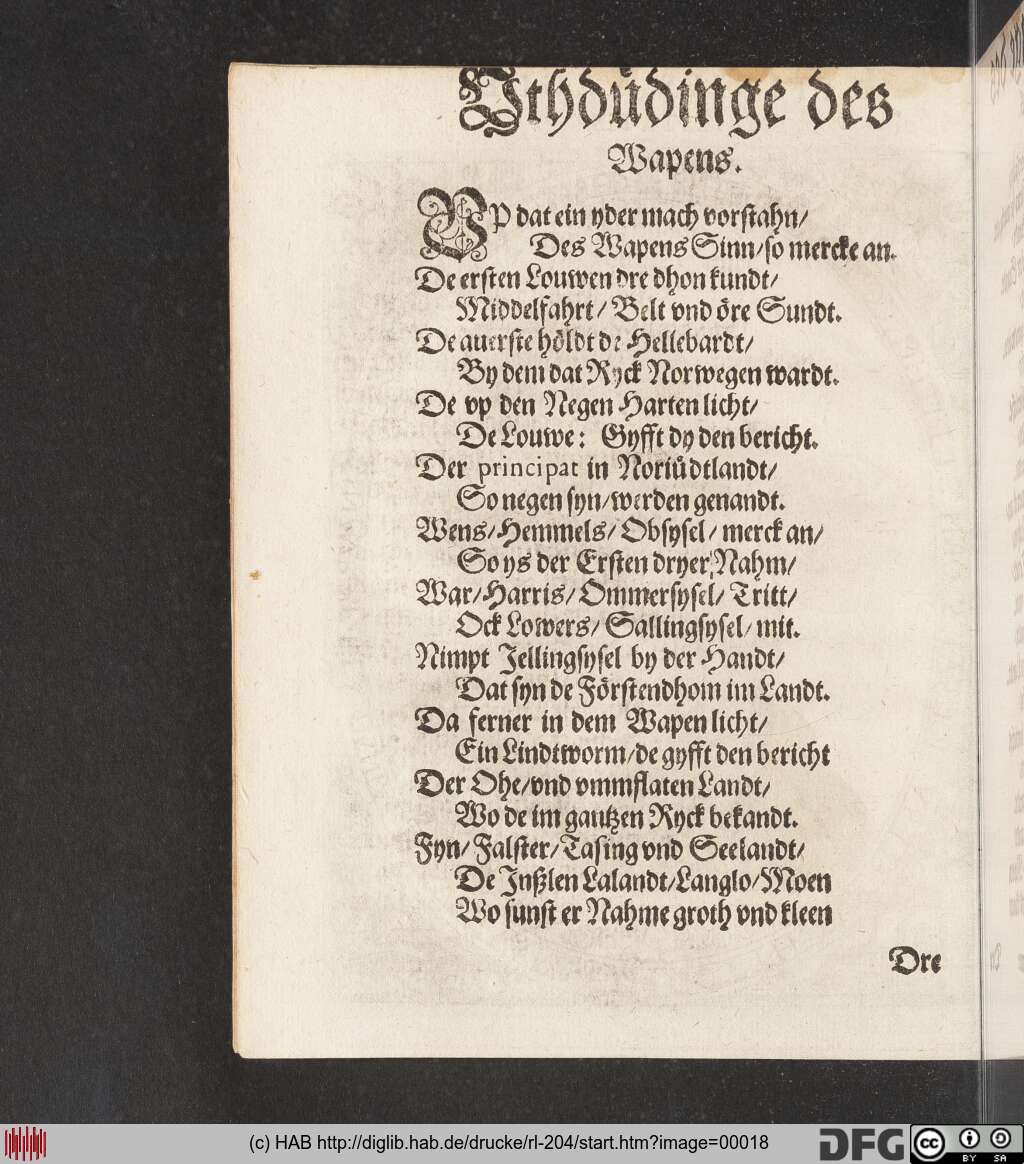 Vthdüdinge des
Wapens.
VP dat ein yder mach vorstahn/
Des Wapens Sinn/so mercke an.
De ersten Louwen dre dhon kundt/
Middelfahrt/ Belt vnd öre Sundt.
De auerste höldt de Hellebardt/
By dem dat Ryck Norwegen wardt.
De vp den Negen Harten licht/
De Louwe: Gyfft dy den bericht.
Der principat in Noriüdtlandt/
So negen syn/werden genandt.
Wens/Hemmels/Obsysel/ merck an/
So ys der Ersten dryer Nahm/
War/Harris/Ommersysel/ Tritt/
Ock Lowers/ Sallingsysel/ mit.
Nimpt Jellingsysel by der Handt/
Dat syn de Förstendhom im Landt.
Da ferner in dem Wapen licht/
Ein Lindtworm/de gyfft den bericht
Der Ohe/vnd vmmflaten Landt/
Wo de im gantzen Ryck bekandt.
Fyn/ Falster/Tasing vnd Seelandt/
De Jnßlen Lalandt/Langlo/Moen
Wo sunst er Nahme groth vnd kleen
Dre
(c) HAB http://diglib.hab.de/drucke/rl-204/start.htm?image=00018
DFG
cc BY SA